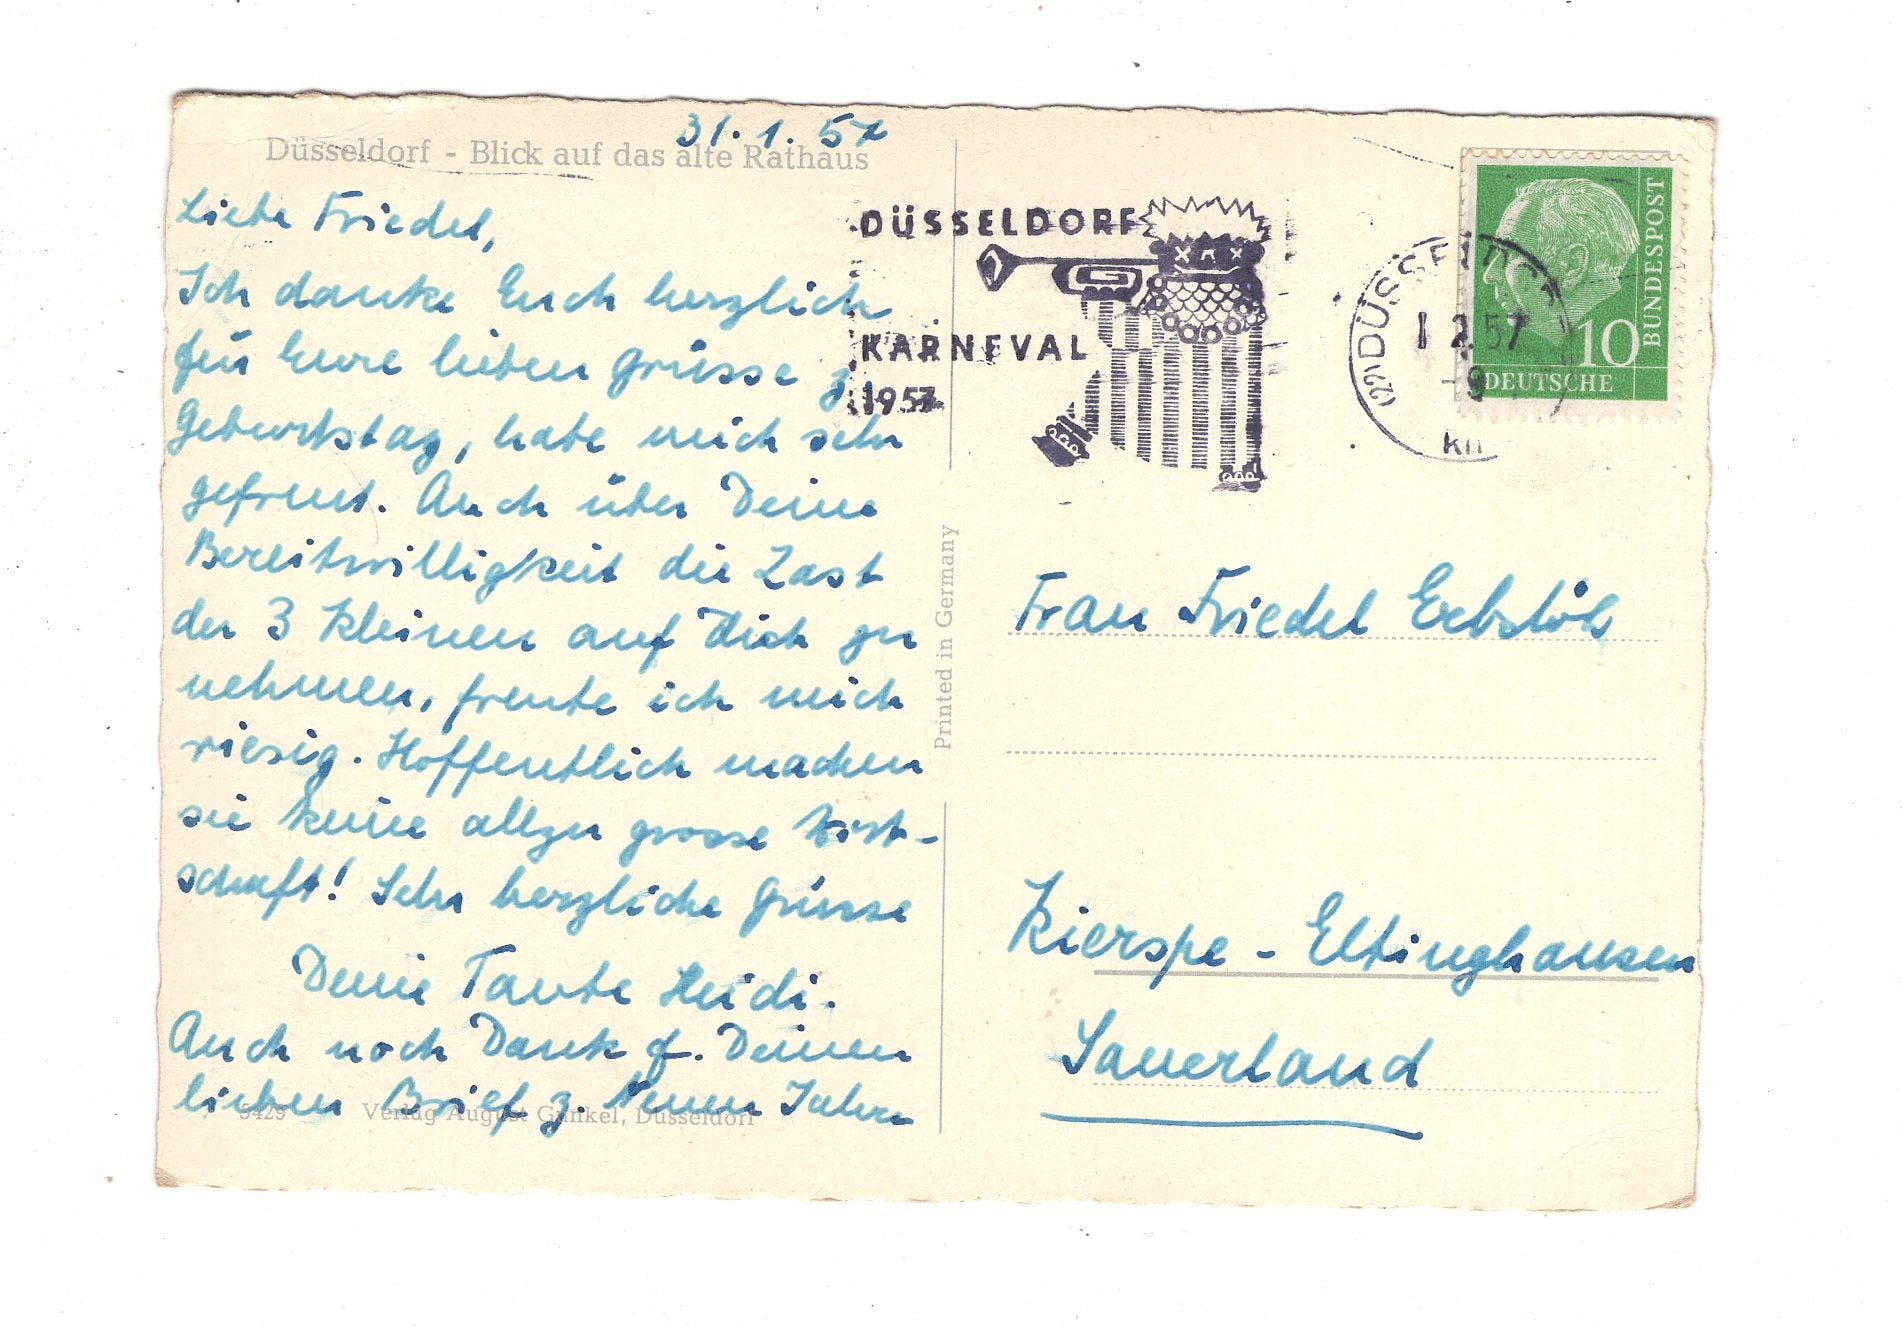 31.1.57
Düsseldorf - Blick auf das alte Rathaus
Liebe Friedel,
Ich danke Euch herzlich
für Eure lieben Grüsse z.
Geburtstag, habe mich sehr
gefreut. Auch über Deine
Bereitwilligkeit die Last
der 3 Kleinen auf Dich zu
nehmen, freute ich mich
riesig. Hoffentlich machen
sie keine allzu grosse Wirt-
schaft! Sehr herzliche Grüsse
Deine Tante Heidi.
Auch noch Dank f. Deinen
lieben Brief z. Neuen Jahre
5429 Verlag August Gunkel, Düsseldorf
Printed in Germany
DÜSSELDORF
KARNEVAL
1957
(22) DÜSSELDORF
1.2.57
-9
DEUTSCHE
BUNDESPOST
10
Frau Friedel
Kierspe - Eltinghausen
Sauerland